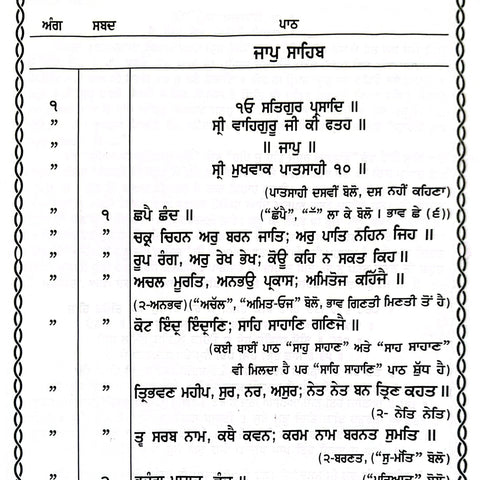 ਅੰਗ ਸਬਦ ਪਾਠ
ਜਾਪੁ ਸਾਹਿਬ
੧ ੧ਓ ਸਤਿਗੁਰ ਪ੍ਰਸਾਦਿ ॥
” ਸ੍ਰੀ ਵਾਹਿਗੁਰੂ ਜੀ ਕੀ ਫਤਹ ॥
” ॥ ਜਾਪੁ ॥
” ਸ੍ਰੀ ਮੁਖਵਾਕ ਪਾਤਸਾਹੀ ੧੦ ॥
(ਪਾਤਸਾਹੀ ਦਸਵੀਂ ਬੋਲੋ, ਦਸ ਨਹੀਂ ਕਹਿਣਾ)
” ੧ ਛਪੈ ਛੰਦ ॥ (“ਛੱਪੈ”, “ ੱ” ਲਾ ਕੇ ਬੋਲੋ । ਭਾਵ ਛੇ (੬))
” ” ਚਕ੍ਰ ਚਿਹਨ ਅਰੁ ਬਰਨ ਜਾਤਿ; ਅਰੁ ਪਾਤਿ ਨਹਿਨ ਜਿਹ ॥
” ” ਰੂਪ ਰੰਗ, ਅਰੁ ਰੇਖ ਭੇਖ; ਕੋਊ ਕਹਿ ਨ ਸਕਤ ਕਿਹ ॥
” ” ਅਚਲ ਮੂਰਤਿ, ਅਨਭਉ ਪ੍ਰਕਾਸ; ਅਮਿਤੋਜ ਕਹਿੱਜੈ ॥
(੨-ਅਨਭਵ) (“ਅਚੱਲ”, “ਅਮਿਤ-ਓਜ” ਬੋਲੋ, ਭਾਵ ਗਿਣਤੀ ਮਿਣਤੀ ਤੋਂ ਹੈ)
” ” ਕੋਟ ਇੰਦ੍ਰ ਇੰਦ੍ਰਾਣਿ; ਸਾਹਿ ਸਾਹਾਣਿ ਗਣਿਜੈ ॥
(ਕਈ ਥਾਈਂ ਪਾਠ “ਸਾਹੁ ਸਾਹਾਣ” ਅਤੇ “ਸਾਹ ਸਾਹਾਣ”
ਵੀ ਮਿਲਦਾ ਹੈ ਪਰ “ਸਾਹਿ ਸਾਹਾਣਿ” ਪਾਠ ਸ਼ੁੱਧ ਹੈ)
” ” ਤ੍ਰਿਭਵਣ ਮਹੀਪ, ਸੁਰ, ਨਰ, ਅਸੁਰ; ਨੇਤ ਨੇਤ ਬਨ ਤ੍ਰਿਣ ਕਹਤ ॥
(੨- ਨੇਤਿ ਨੇਤਿ)
” ” ਤ੍ਵ ਸਰਬ ਨਾਮ, ਕਥੈ ਕਵਨ; ਕਰਮ ਨਾਮ ਬਰਨਤ ਸੁਮਤਿ ॥
(੨-ਬਰਣਤ, (“ਸੁ-ਮੱਤਿ” ਬੋਲੋ)
”